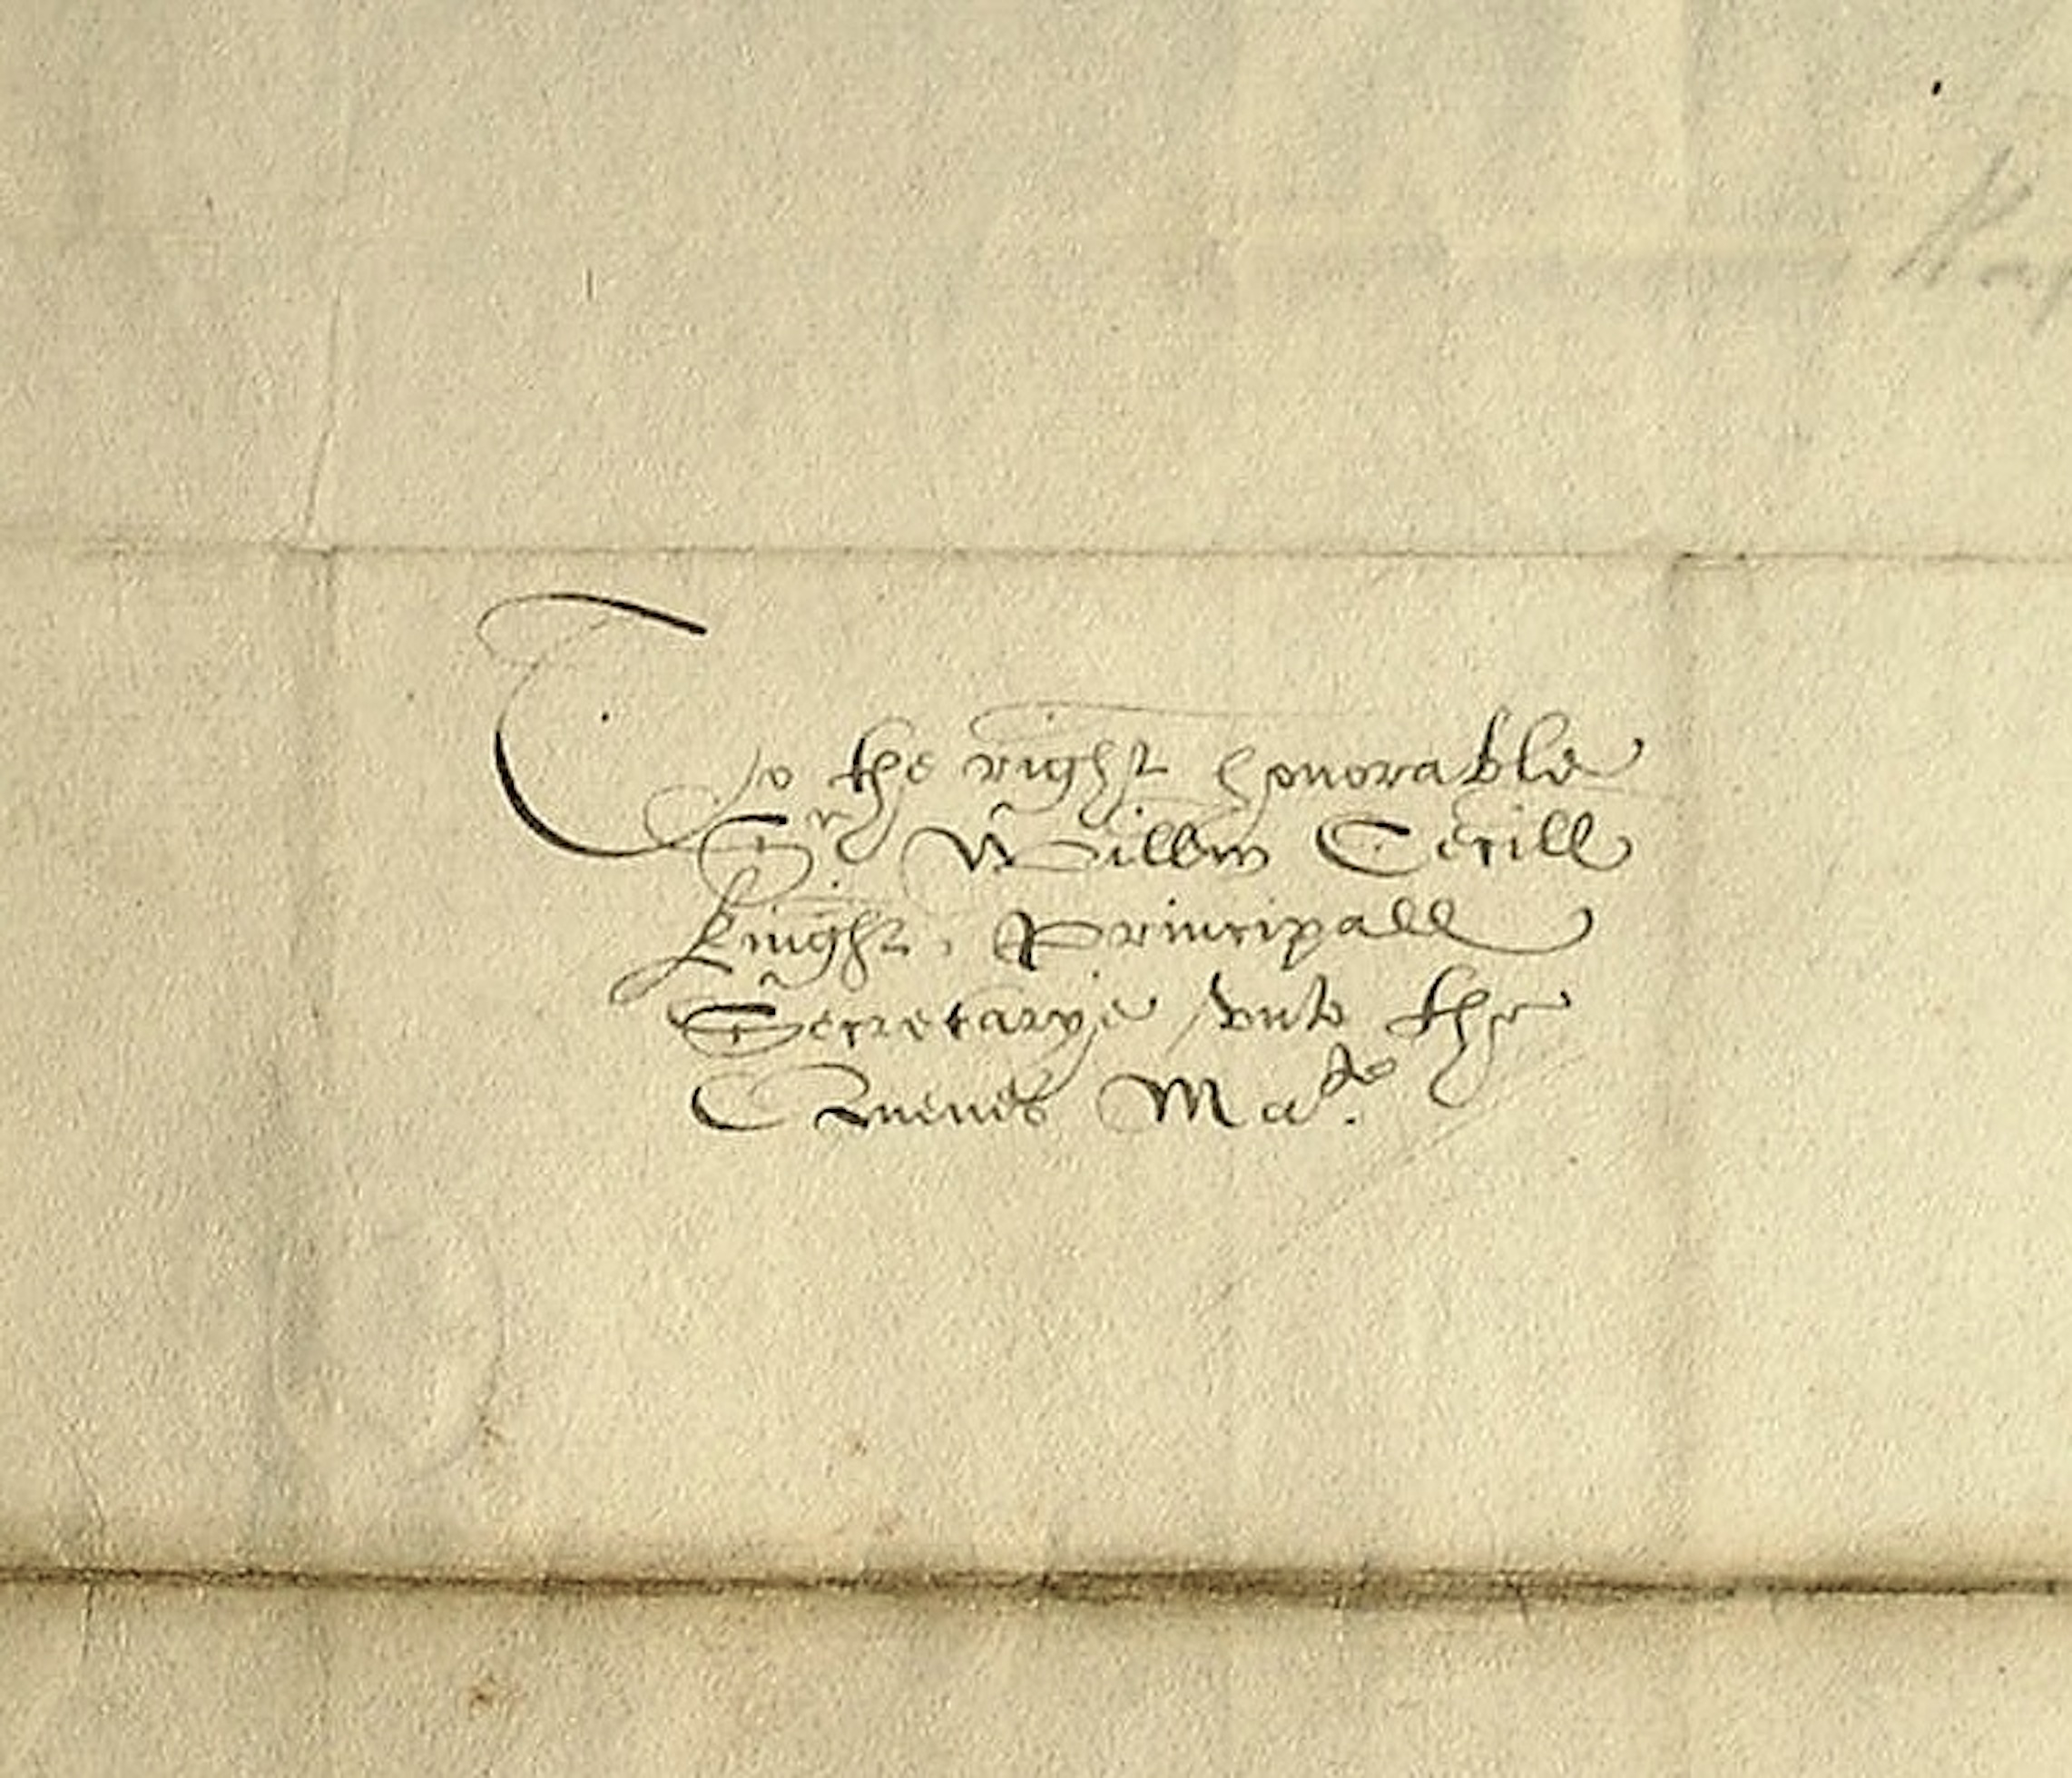 To the right honorable
Sr Willm Cecill
knight, Principall
Secretarye vnto the
Quenes Matie.